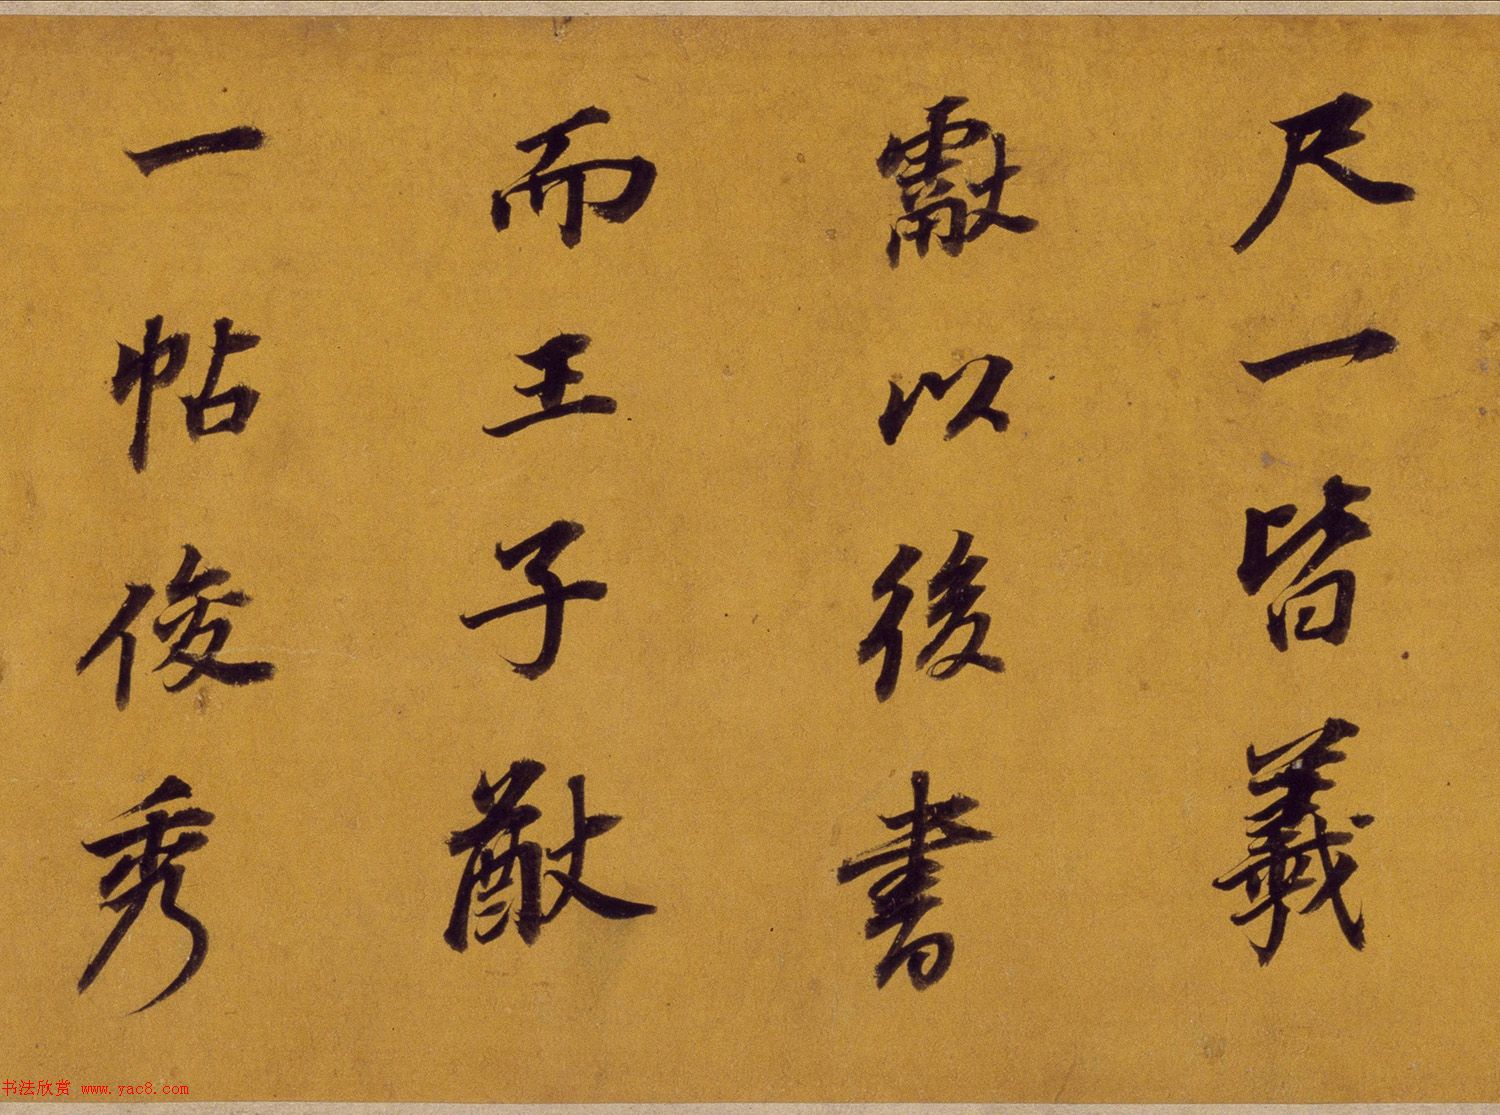 尺一皆羲
獻以後書
而王子猷
一帖俊秀
书法欣赏 www.yac8.com